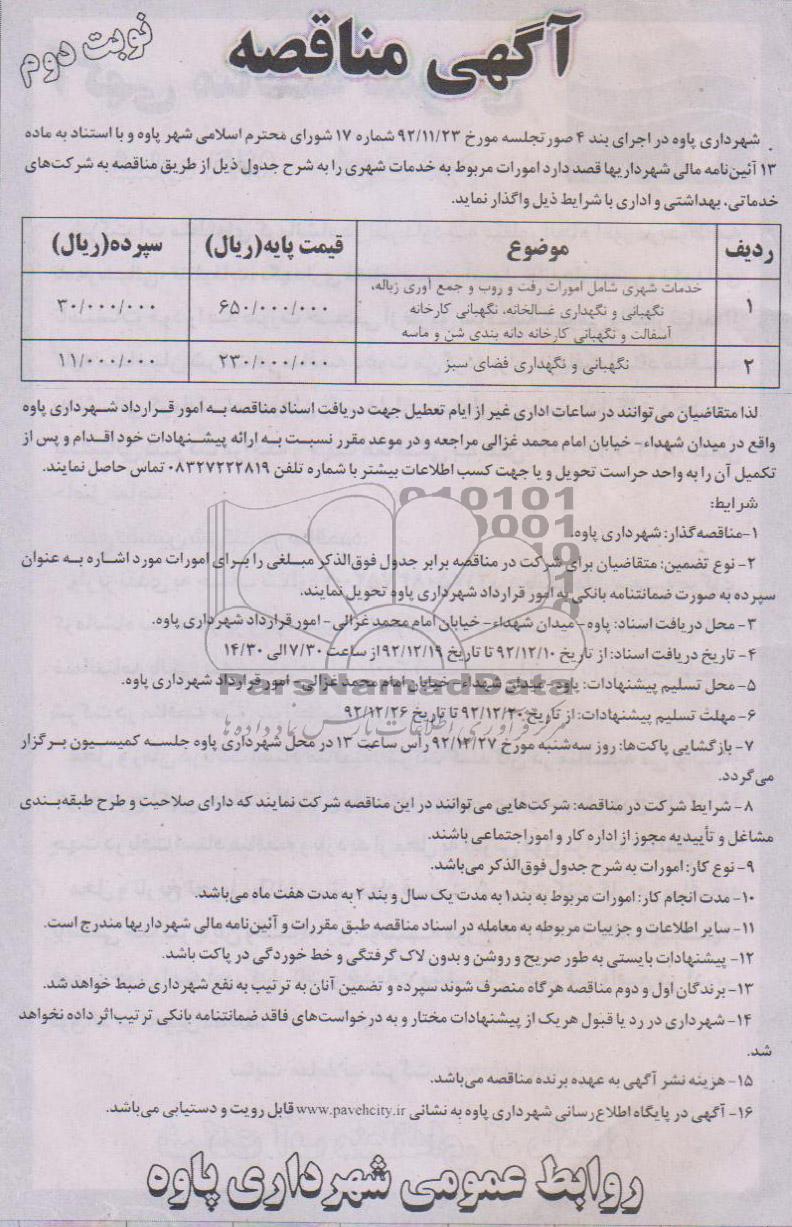 آگهی مناقصه
نوبت دوم
شهرداری پاوه در اجرای بند ۴ صورتجلسه مورخ ۹۲/۱۱/۲۳ شماره ۱۷ شورای محترم اسلامی شهر پاوه و با استناد به ماده
۱۳ آئین‌نامه مالی شهرداریها قصد دارد امورات مربوط به خدمات شهری را به شرح جدول ذیل از طریق مناقصه به شرکت‌های
خدماتی، بهداشتی و اداری با شرایط ذیل واگذار نماید.
ردیف موضوع قیمت پایه(ریال) سپرده(ریال)
خدمات شهری شامل امورات رفت و روب و جمع آوری زباله،
۱ نگهبانی و نگهداری غسالخانه، نگهبانی کارخانه ۶۵۰/۰۰۰/۰۰۰ ۳۰/۰۰۰/۰۰۰
آسفالت و نگهبانی کارخانه دانه بندی شن و ماسه
۲ نگهبانی و نگهداری فضای سبز ۲۳۰/۰۰۰/۰۰۰ ۱۱/۰۰۰/۰۰۰
لذا متقاضیان می‌توانند در ساعات اداری غیر از ایام تعطیل جهت دریافت اسناد مناقصه به امور قرارداد شهرداری پاوه
واقع در میدان شهداء- خیابان امام محمد غزالی مراجعه و در موعد مقرر نسبت به ارائه پیشنهادات خود اقدام و پس از
تکمیل آن را به واحد حراست تحویل و یا جهت کسب اطلاعات بیشتر با شماره تلفن ۰۸۳۲۷۲۲۲۸۱۹ تماس حاصل نمایند.
شرایط:
۱-مناقصه‌گذار: شهرداری پاوه.
۲- نوع تضمین: متقاضیان برای شرکت در مناقصه برابر جدول فوق‌الذکر مبلغی را برای امورات مورد اشاره به عنوان
سپرده به صورت ضمانتنامه بانکی به امور قرارداد شهرداری پاوه تحویل نمایند.
۳- محل دریافت اسناد: پاوه- میدان شهداء- خیابان امام محمد غزالی- امور قرارداد شهرداری پاوه.
۴- تاریخ دریافت اسناد: از تاریخ ۹۲/۱۲/۱۰ تا تاریخ ۹۲/۱۲/۱۹ از ساعت ۷/۳۰ الی ۱۴/۳۰
۵- محل تسلیم پیشنهادات: پاوه- میدان شهداء- خیابان امام محمد غزالی- امور قرارداد شهرداری پاوه.
۶- مهلت تسلیم پیشنهادات: از تاریخ ۹۲/۱۲/۲۰ تا تاریخ ۹۲/۱۲/۲۶
۷- بازگشایی پاکت‌ها: روز سه‌شنبه مورخ ۹۲/۱۲/۲۷ رأس ساعت ۱۳ در محل شهرداری پاوه جلسه کمیسیون برگزار
می‌گردد.
۸- شرایط شرکت در مناقصه: شرکت‌هایی می‌توانند در این مناقصه شرکت نمایند که دارای صلاحیت و طرح طبقه‌بندی
مشاغل و تأییدیه مجوز از اداره کار و امور اجتماعی باشند.
۹- نوع کار: امورات به شرح جدول فوق‌الذکر می‌باشد.
۱۰- مدت انجام کار: امورات مربوط به بند۱ به مدت یک سال و بند ۲ به مدت هفت ماه می‌باشد.
۱۱- سایر اطلاعات و جزییات مربوطه به معامله در اسناد مناقصه طبق مقررات و آئین‌نامه مالی شهرداریها مندرج است.
۱۲- پیشنهادات بایستی به طور صریح و روشن و بدون لاک گرفتگی و خط خوردگی در پاکت باشد.
۱۳- برندگان اول و دوم مناقصه هرگاه منصرف شوند سپرده و تضمین آنان به ترتیب به نفع شهرداری ضبط خواهد شد.
۱۴- شهرداری در رد یا قبول هریک از پیشنهادات مختار و به درخواست‌های فاقد ضمانتنامه بانکی ترتیب‌اثر داده نخواهد
شد.
۱۵- هزینه نشر آگهی به عهده برنده مناقصه می‌باشد.
۱۶- آگهی در پایگاه اطلاع‌رسانی شهرداری پاوه به نشانی www.pavehcity.ir قابل رویت و دستیابی می‌باشد.
روابط عمومی شهرداری پاوه
ParsNamadData
مرکز فرآوری اطلاعات پارس نماد داده ها